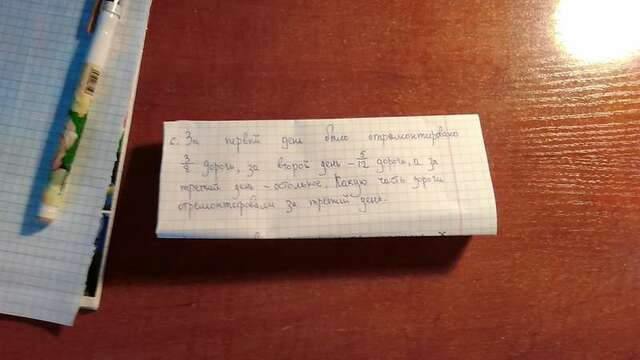 с. За первый день было отремонтировано
3/8 дороги, за второй день - 5/12 дороги, а за
третий день - остальное. Какую часть дороги
отремонтировали за третий день.